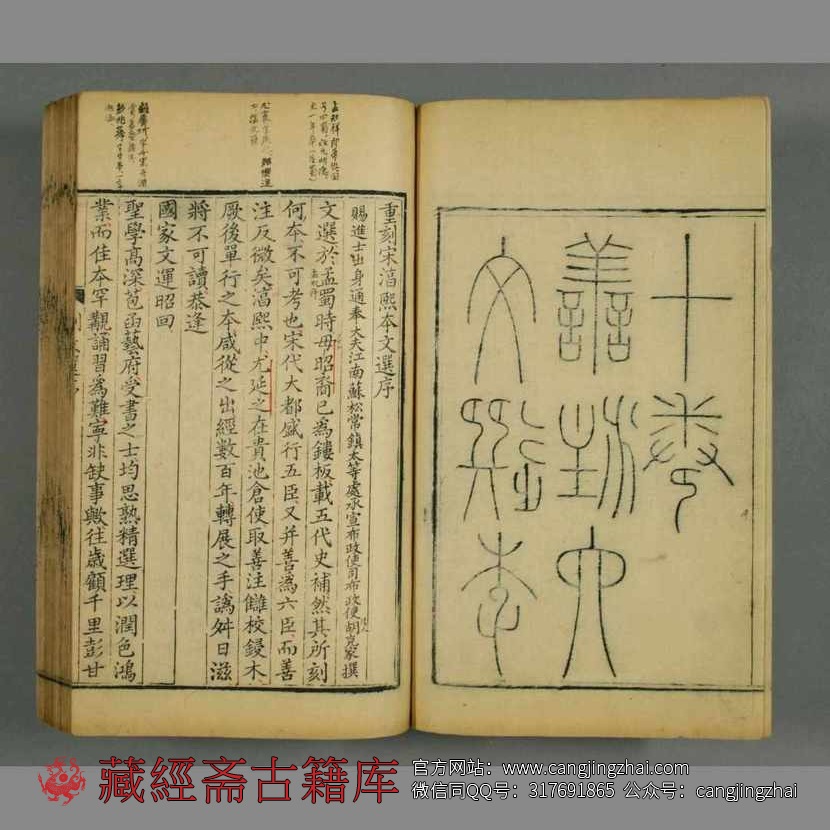 文選李
譱注六
十卷
重刻宋湻熙本文選序
賜進士出身通奉大夫江南蘇松常鎮太等處承宣布政使司布政使胡克家撰
文選於孟蜀時毋昭裔已為鏤板載五代史補然其所刻
何本不可考也宋代大都盛行五臣又并善為六臣而善
注反微矣湻熙中尤延之在貴池倉使取善注讎校鋟木
厥後單行之本咸從之出經數百年轉展之手譌舛日滋
將不可讀恭逢
國家文運昭回
聖學高深苞函藝府受書之士均思熟精選理以潤色鴻
業而佳本罕覯誦習為難寧非缺事歟往歲顧千里彭甘
藏經斋古籍库
官方网站：www.cangjingzhai.com
微信同QQ号：317691865 公众号：cangjingzhai